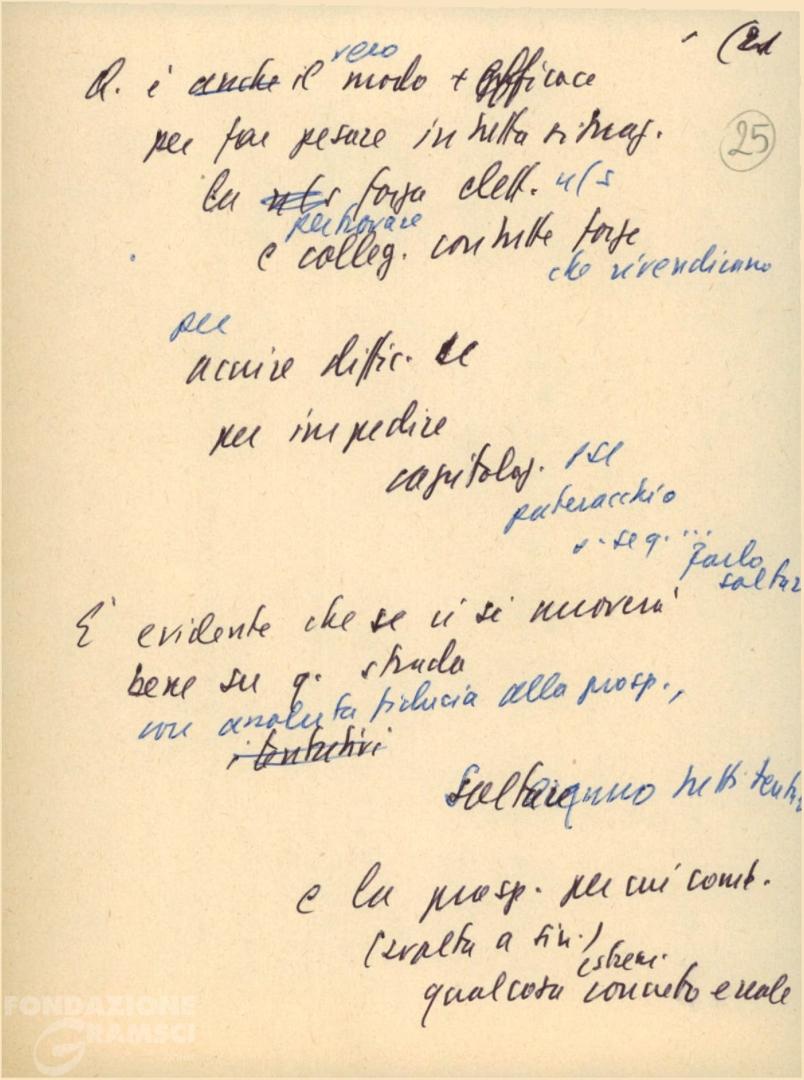 (21
25
vero
Q. è anche il modo + efficace
per far pesare in tutta situaz.
la n/s forza elett. n/s
per trovare
e colleg. con tutte forze
che rivendicano
per
acuire diffic.
per impedire
capitolaz. PSI
pateracchio
farlo
saltar
E' evidente che se ci si muoverà
bene su q. strada
con assoluta fiducia alla prosp.,
i tentativi
Salteranno tutti tentat
e la prosp. per cui comb.
(svolta a sin.)
estrem.
qualcosa concreto e reale
FONDAZIONE
GRAMSCI